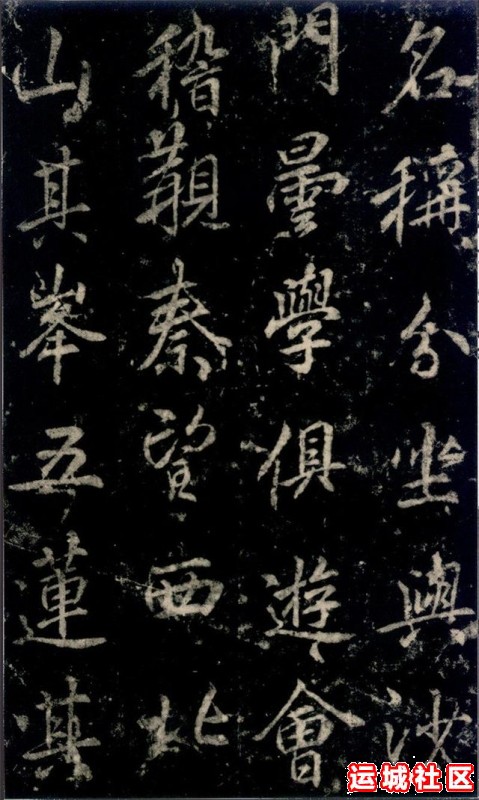 名稱分坐與沙
門曇學俱遊會
稽覯秦望西北
山其峯五蓮其
运城社区